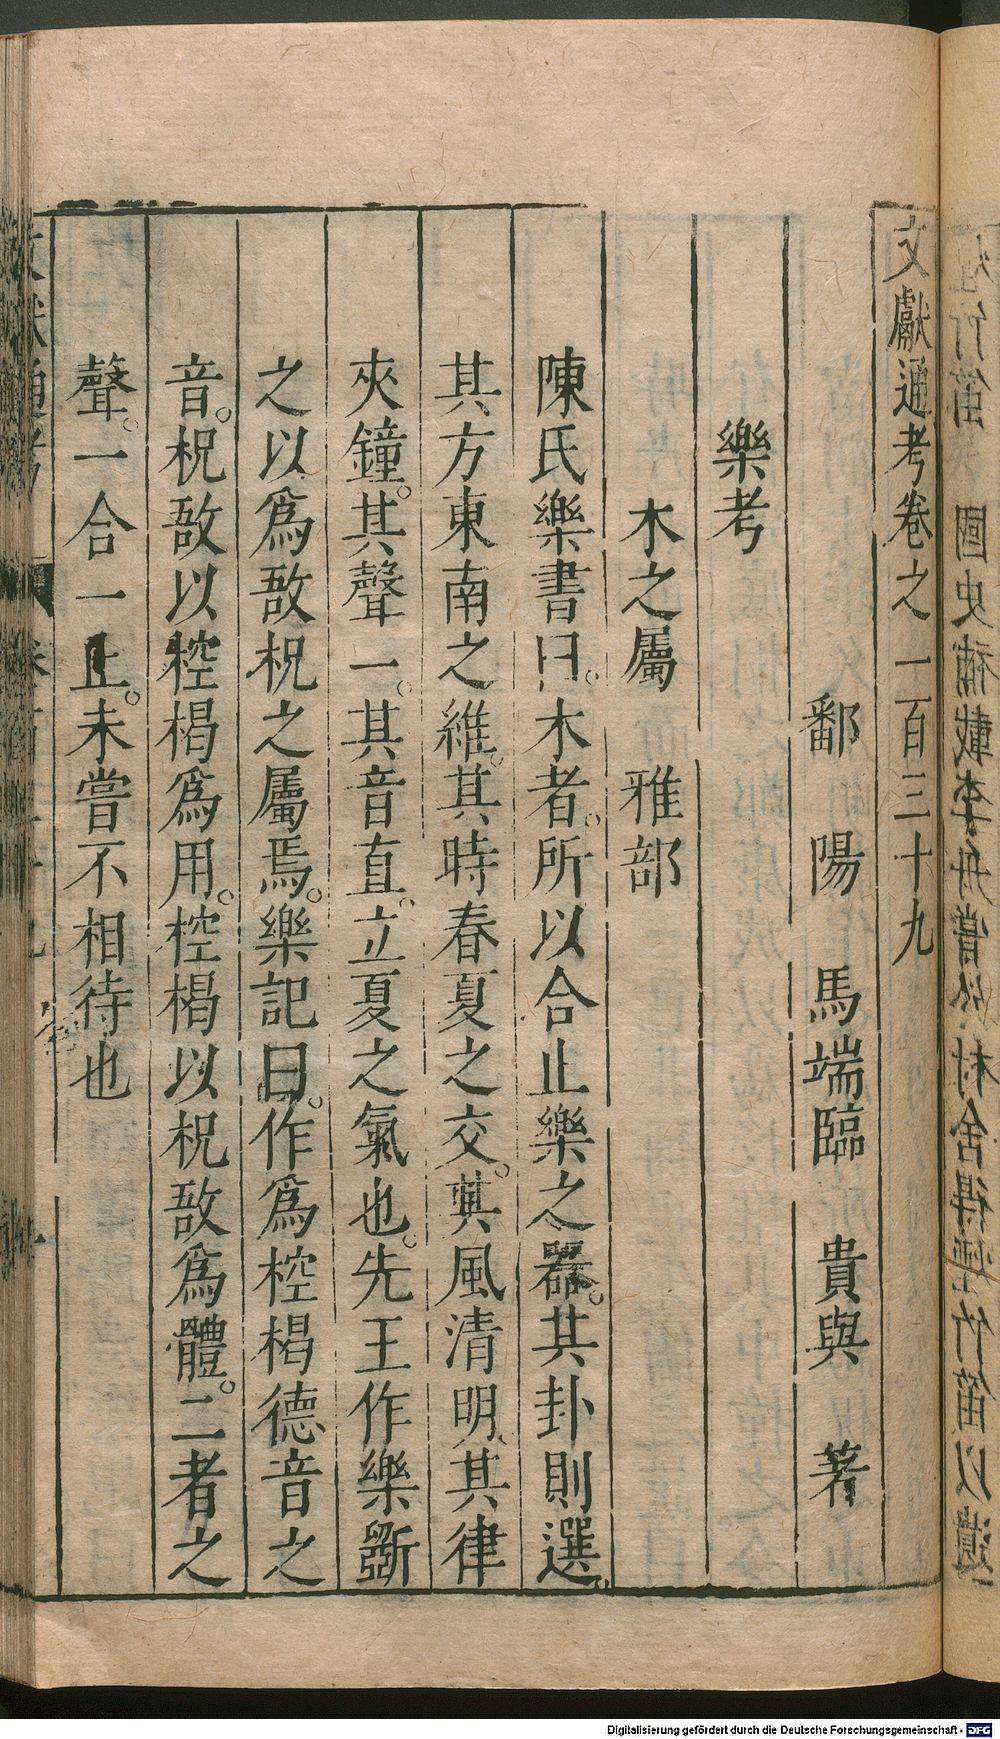 文獻通考卷之一百三十九
鄱陽馬端臨貴與著
樂考
木之屬 雅部
陳氏樂書曰。木者。所以合止樂之器。其卦則選。
其方東南之維。其時春夏之交。其風清明。其律
夾鐘。其聲一。其音直。立夏之氣也。先王作樂斲
之以為敔柷之屬焉。樂記曰。作為椌楬德音之
音。柷敔以椌楬為用。椌楬以柷敔為體。二者之
聲。一合一止。未嘗不相待也
Digitalisierung gefördert durch die Deutsche Forschungsgemeinschaft - DFG